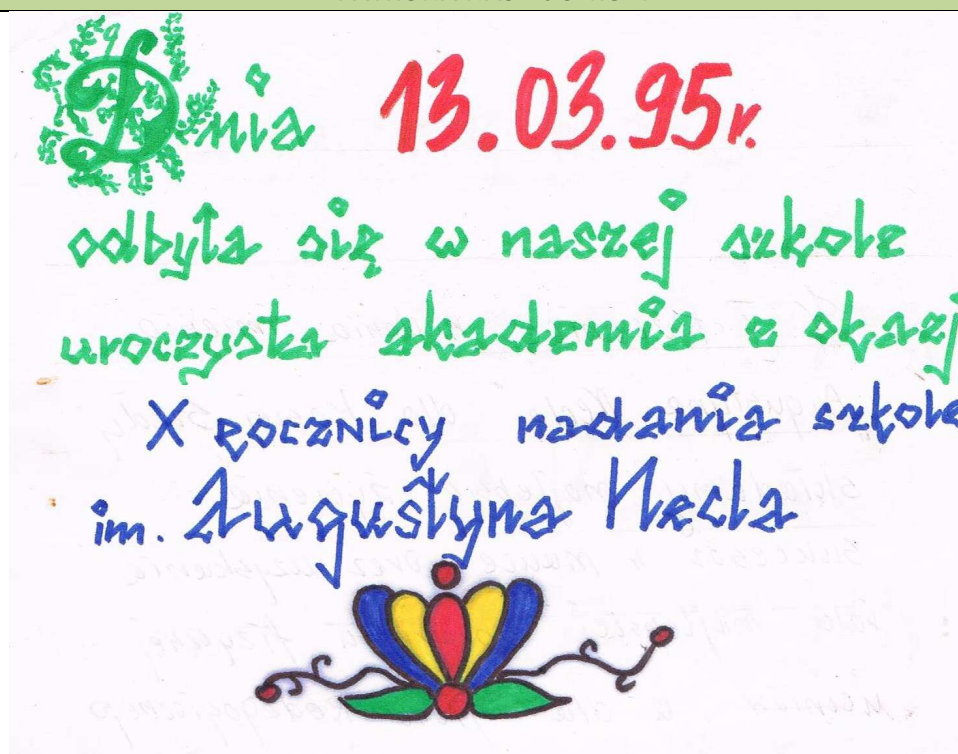 Dnia 13.03.95r.
odbyła się w naszej szkole
uroczysta akademia z okazj
X rocznicy nadania szkole
im. Augustyna Necla